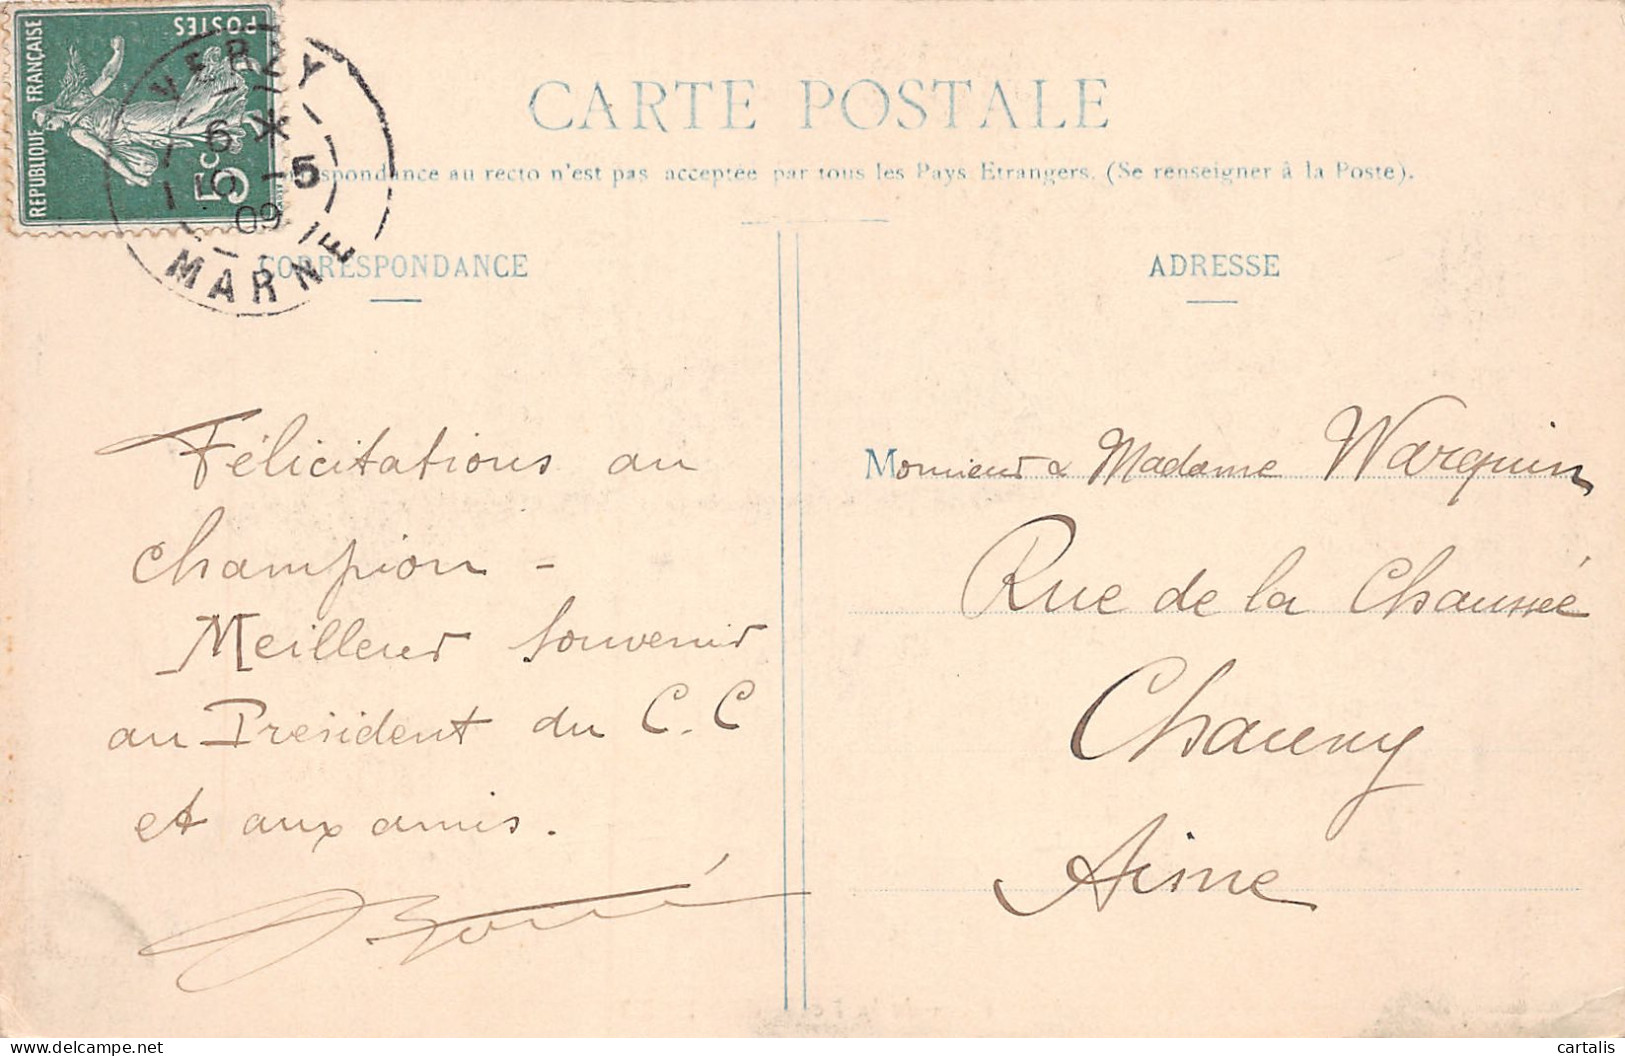 POSTES
RÉPUBLIQUE FRANÇAISE
5c
VERZY
6 *
5 -5
09
MARNE
CARTE POSTALE
respondance au recto n'est pas acceptée par tous les Pays Etrangers. (Se renseigner à la Poste).
CORRESPONDANCE
ADRESSE
Félicitations au
champion -
Meilleur souvenir
au Président du C.C
et aux amis.
Monsieur & Madame Warquin
Rue de la Chaussée
Chauny
Aisne
cartalis